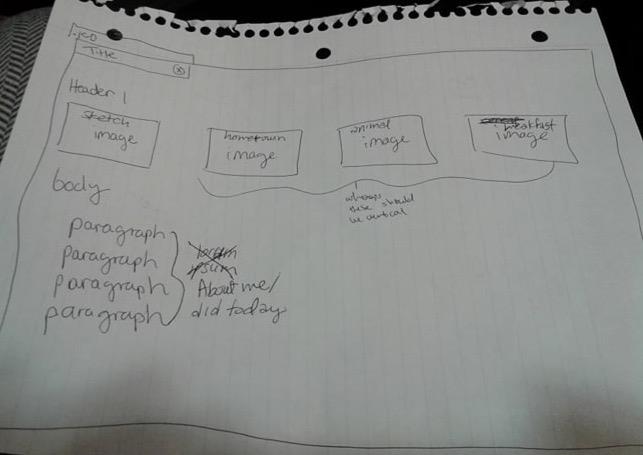 .ico
Title
x
Header 1
sketch
image
hometown
image
animal
image
breakfast
image
whoops
these should
be vertical
body
paragraph
paragraph
paragraph
paragraph
lorem
ipsum
About me/
did today